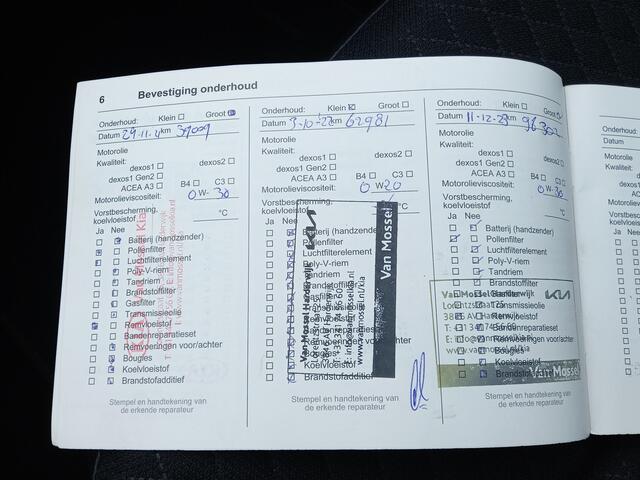 6 Bevestiging onderhoud
Onderhoud: Klein Groot
Datum 29-11 km
Motorolie
Kwaliteit:
dexos1 dexos2
dexos1 Gen2
ACEA A3 B4 C3
Motorolieviscositeit: 0 W- 30
Vorstbescherming,
koelvloeistof °C
Ja Nee
Batterij (handzender)
Pollenfilter
Luchtfilterelement
Poly-V-riem
Tandriem
Brandstoffilter
Gasfilter
Transmissieolie
Remvloeistof
Bandenreparatieset
Remvoeringen voor/achter
Bougies
Koelvloeistof
Brandstofadditief
Stempel en handtekening van
de erkende reparateur
Kia
Onderhoud: Klein Groot
Datum 3-10-22 km 62981
Motorolie
Kwaliteit:
dexos1 dexos2
dexos1 Gen2
ACEA A3 B4 C3
Motorolieviscositeit: 0 W 20
Vorstbescherming,
koelvloeistof °C
Ja Nee
Batterij (handzender)
Pollenfilter
Luchtfilterelement
Poly-V-riem
Tandriem
Brandstoffilter
Gasfilter
Transmissieolie
Remvloeistof
Bandenreparatieset
Remvoeringen voor/achter
Bougies
Koelvloeistof
Brandstofadditief
Stempel en handtekening van
de erkende reparateur
KIA
Van Mossel
Van Mossel Harderwijk
www.vanmossel.nl/kia
Onderhoud: Klein Groot
Datum 11-12-23 km 96302
Motorolie
Kwaliteit:
dexos1 dexos2
dexos1 Gen2
ACEA A3 B4 C3
Motorolieviscositeit: 0 W- 30
Vorstbescherming,
koelvloeistof °C
Ja Nee
Batterij (handzender)
Pollenfilter
Luchtfilterelement
Poly-V-riem
Tandriem
Remvoeringen voor/achter
Bougies
Koelvloeistof
Stempel en handtekening van
de erkende reparateur
Van Mossel Harderwijk
KIA
Van Mossel
Onderhoud
Datum
Motorolie
Kwaliteit: